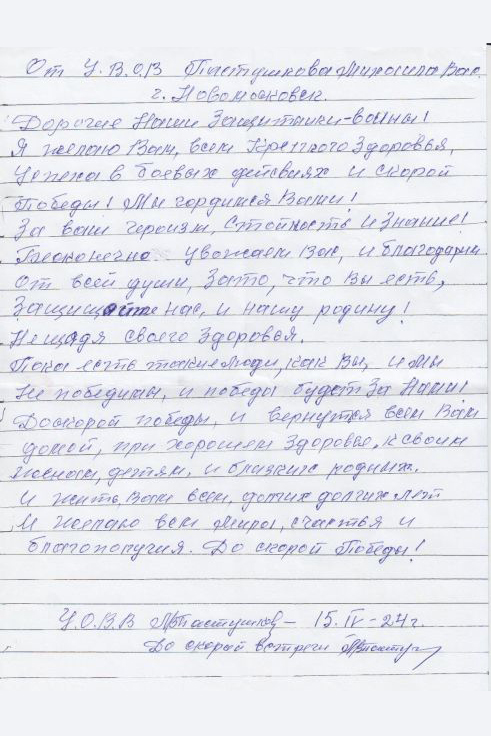 От У.В.О.В Пастушкова Михаила Вас.
г. Новомосковск.
Дорогие Наши Защитники-воины!
Я желаю Вам, всем Крепкого Здоровья,
Успеха в боевых действиях и скорой
Победы! Мы гордимся Вами!
За ваш героизм, Стойкость и Знание!
Бесконечно уважаем Вас, и благодарим
От всей души, Зато, что Вы есть,
Защищаете нас, и нашу родину!
Не щадя своего Здоровья.
Пока есть такие люди, как Вы, и Мы
Не победимы, и победа будет За Нами!
До скорой победы, и вернуться всем Вам
домой, при хорошем Здоровье, к своим
женам, детям, и близких родных.
И жить Вам всем, долгих долгих лет
И желаю всем Мира, счастья и
благополучия. До скорой Победы!
У.О.В.В Пастушков – 15.IV-24 г.
До скорой встречи